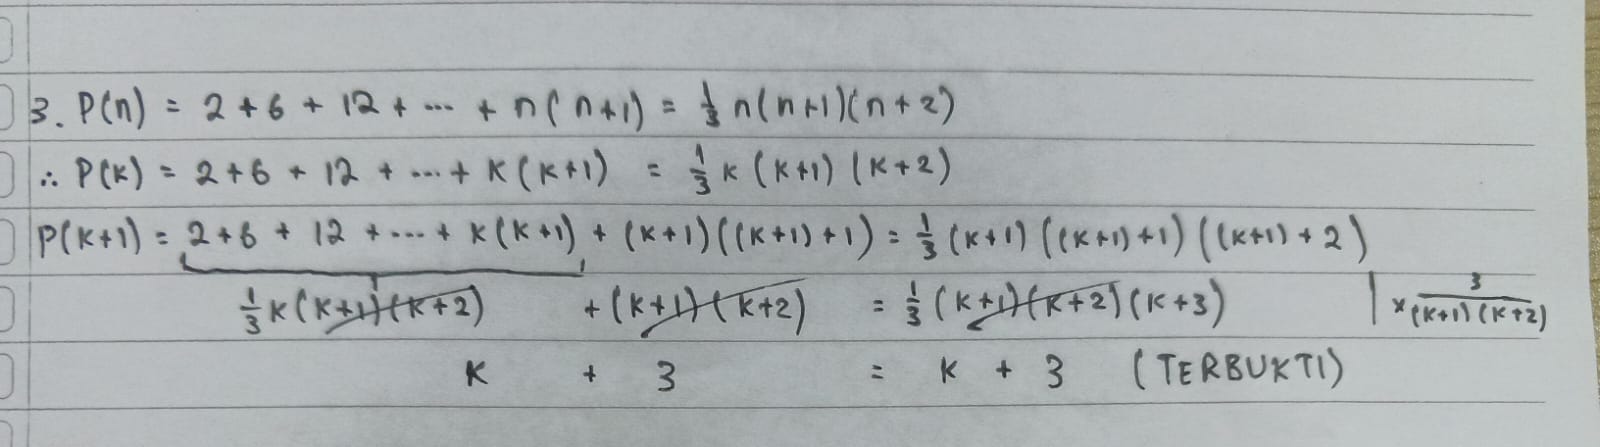 3. P(n) = 2 + 6 + 12 + ... + n(n+1) = 1/3 n(n+1)(n+2)
∴ P(k) = 2 + 6 + 12 + ... + k(k+1) = 1/3 k(k+1)(k+2)
P(k+1) = 2 + 6 + 12 + ... + k(k+1) + (k+1)((k+1)+1) = 1/3 (k+1)((k+1)+1)((k+1)+2)
1/3 k(k+1)(k+2) + (k+1)(k+2) = 1/3 (k+1)(k+2)(k+3) | × 3/(k+1)(k+2)
k + 3 = k + 3 (TERBUKTI)